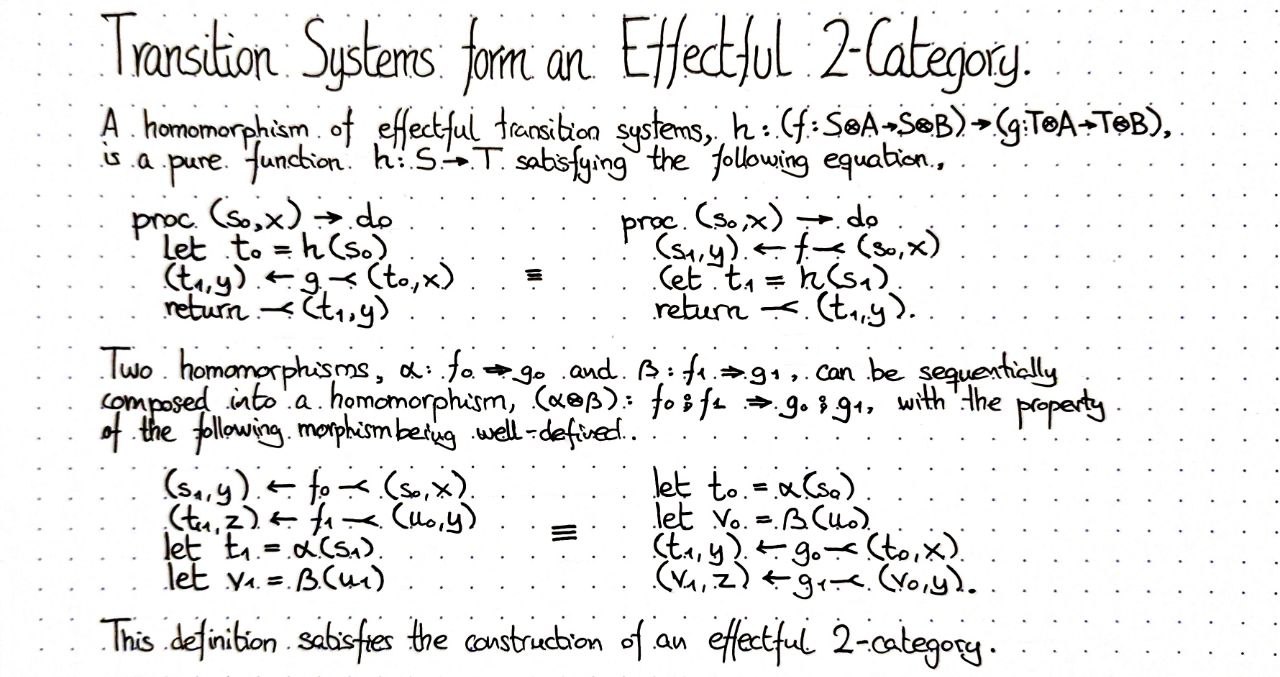 Transition Systems form an Effectful 2-Category.
A homomorphism of effectful transition systems, h : (f : S⊗A→S⊗B) → (g:T⊗A→T⊗B),
is a pure function h : S → T satisfying the following equation,
proc (s₀,x) → do
let t₀ = h(s₀)
(t₁,y) ← g ⤙ (t₀,x)
return ⤙ (t₁,y)
≡
proc (s₀,x) → do
(s₁,y) ← f ⤙ (s₀,x)
let t₁ = h(s₁)
return ⤙ (t₁,y).
Two homomorphisms, α: f₀ ⇒ g₀ and β : f₁ ⇒ g₁, can be sequentially
composed into a homomorphism, (α⊗β) : f₀ ⨾ f₁ ⇒ g₀ ⨾ g₁, with the property
of the following morphism being well-defined.
(s₁,y) ← f₀ ⤙ (s₀,x)
(u₁,z) ← f₁ ⤙ (u₀,y)
let t₁ = α(s₁)
let v₁ = β(u₁)
≡
let t₀ = α(s₀)
let v₀ = β(u₀)
(t₁,y) ← g₀ ⤙ (t₀,x)
(v₁,z) ← g₁ ⤙ (v₀,y).
This definition satisfies the construction of an effectful 2-category.